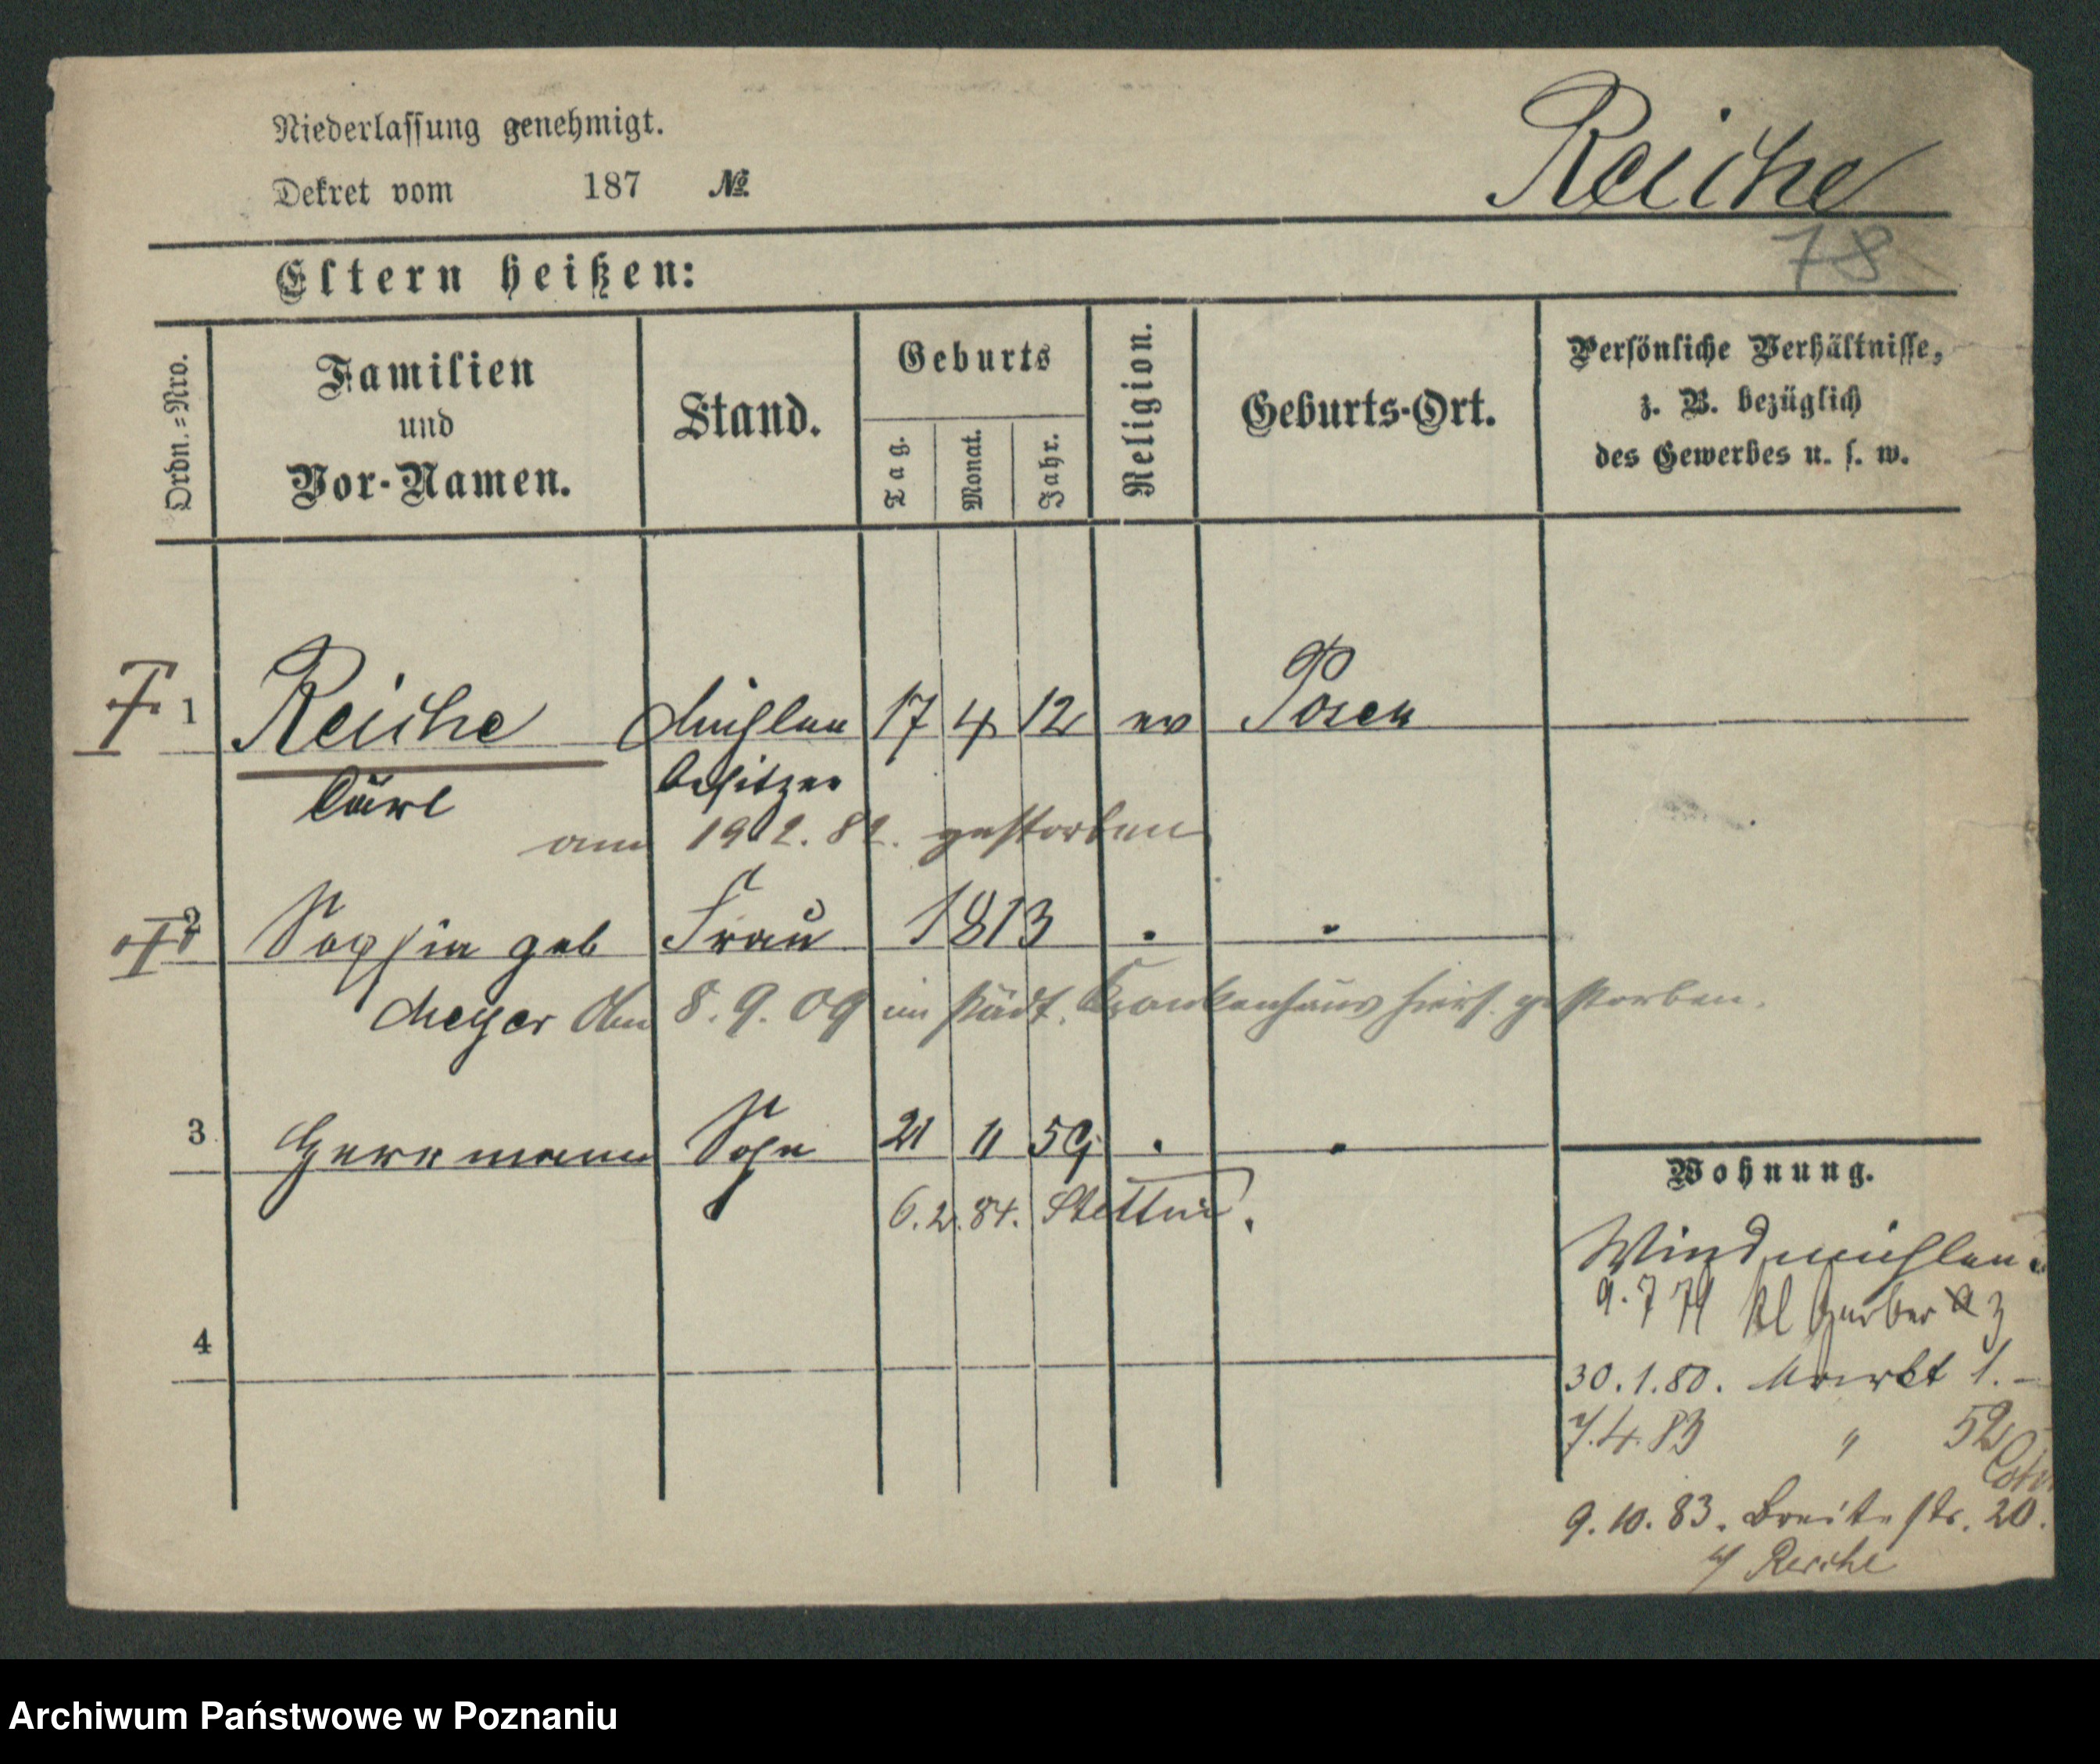 Niederlassung genehmigt.
Dekret vom 187 №
Reiche
78
Eltern heißen:
Ordn.=Nro.
Familien
und
Vor-Namen.
Stand.
Geburts
Tag.
Monat.
Jahr.
Religion.
Geburts-Ort.
Persönliche Verhältnisse,
z. B. bezüglich
des Gewerbes u. s. w.
1 Reiche Mühlen 17 4 12 ev Posen
Carl besitzer
am 19 2. 82. gestorben
2 Sophie geb Frau 1813 " "
Meyer Am 8. 9. 09 im städt. Krankenhaus hiers. gestorben.
3 Herrmann Sohn 21 11 59 " "
6. 2. 84. Stettin.
4
Wohnung.
Windmühlen
9. 7 79 Kl Gerber 3
30. 1. 80. Markt 1. –
7. 4. 83 " 52
9. 10. 83. Breite str. 20.
Reiche
Archiwum Państwowe w Poznaniu